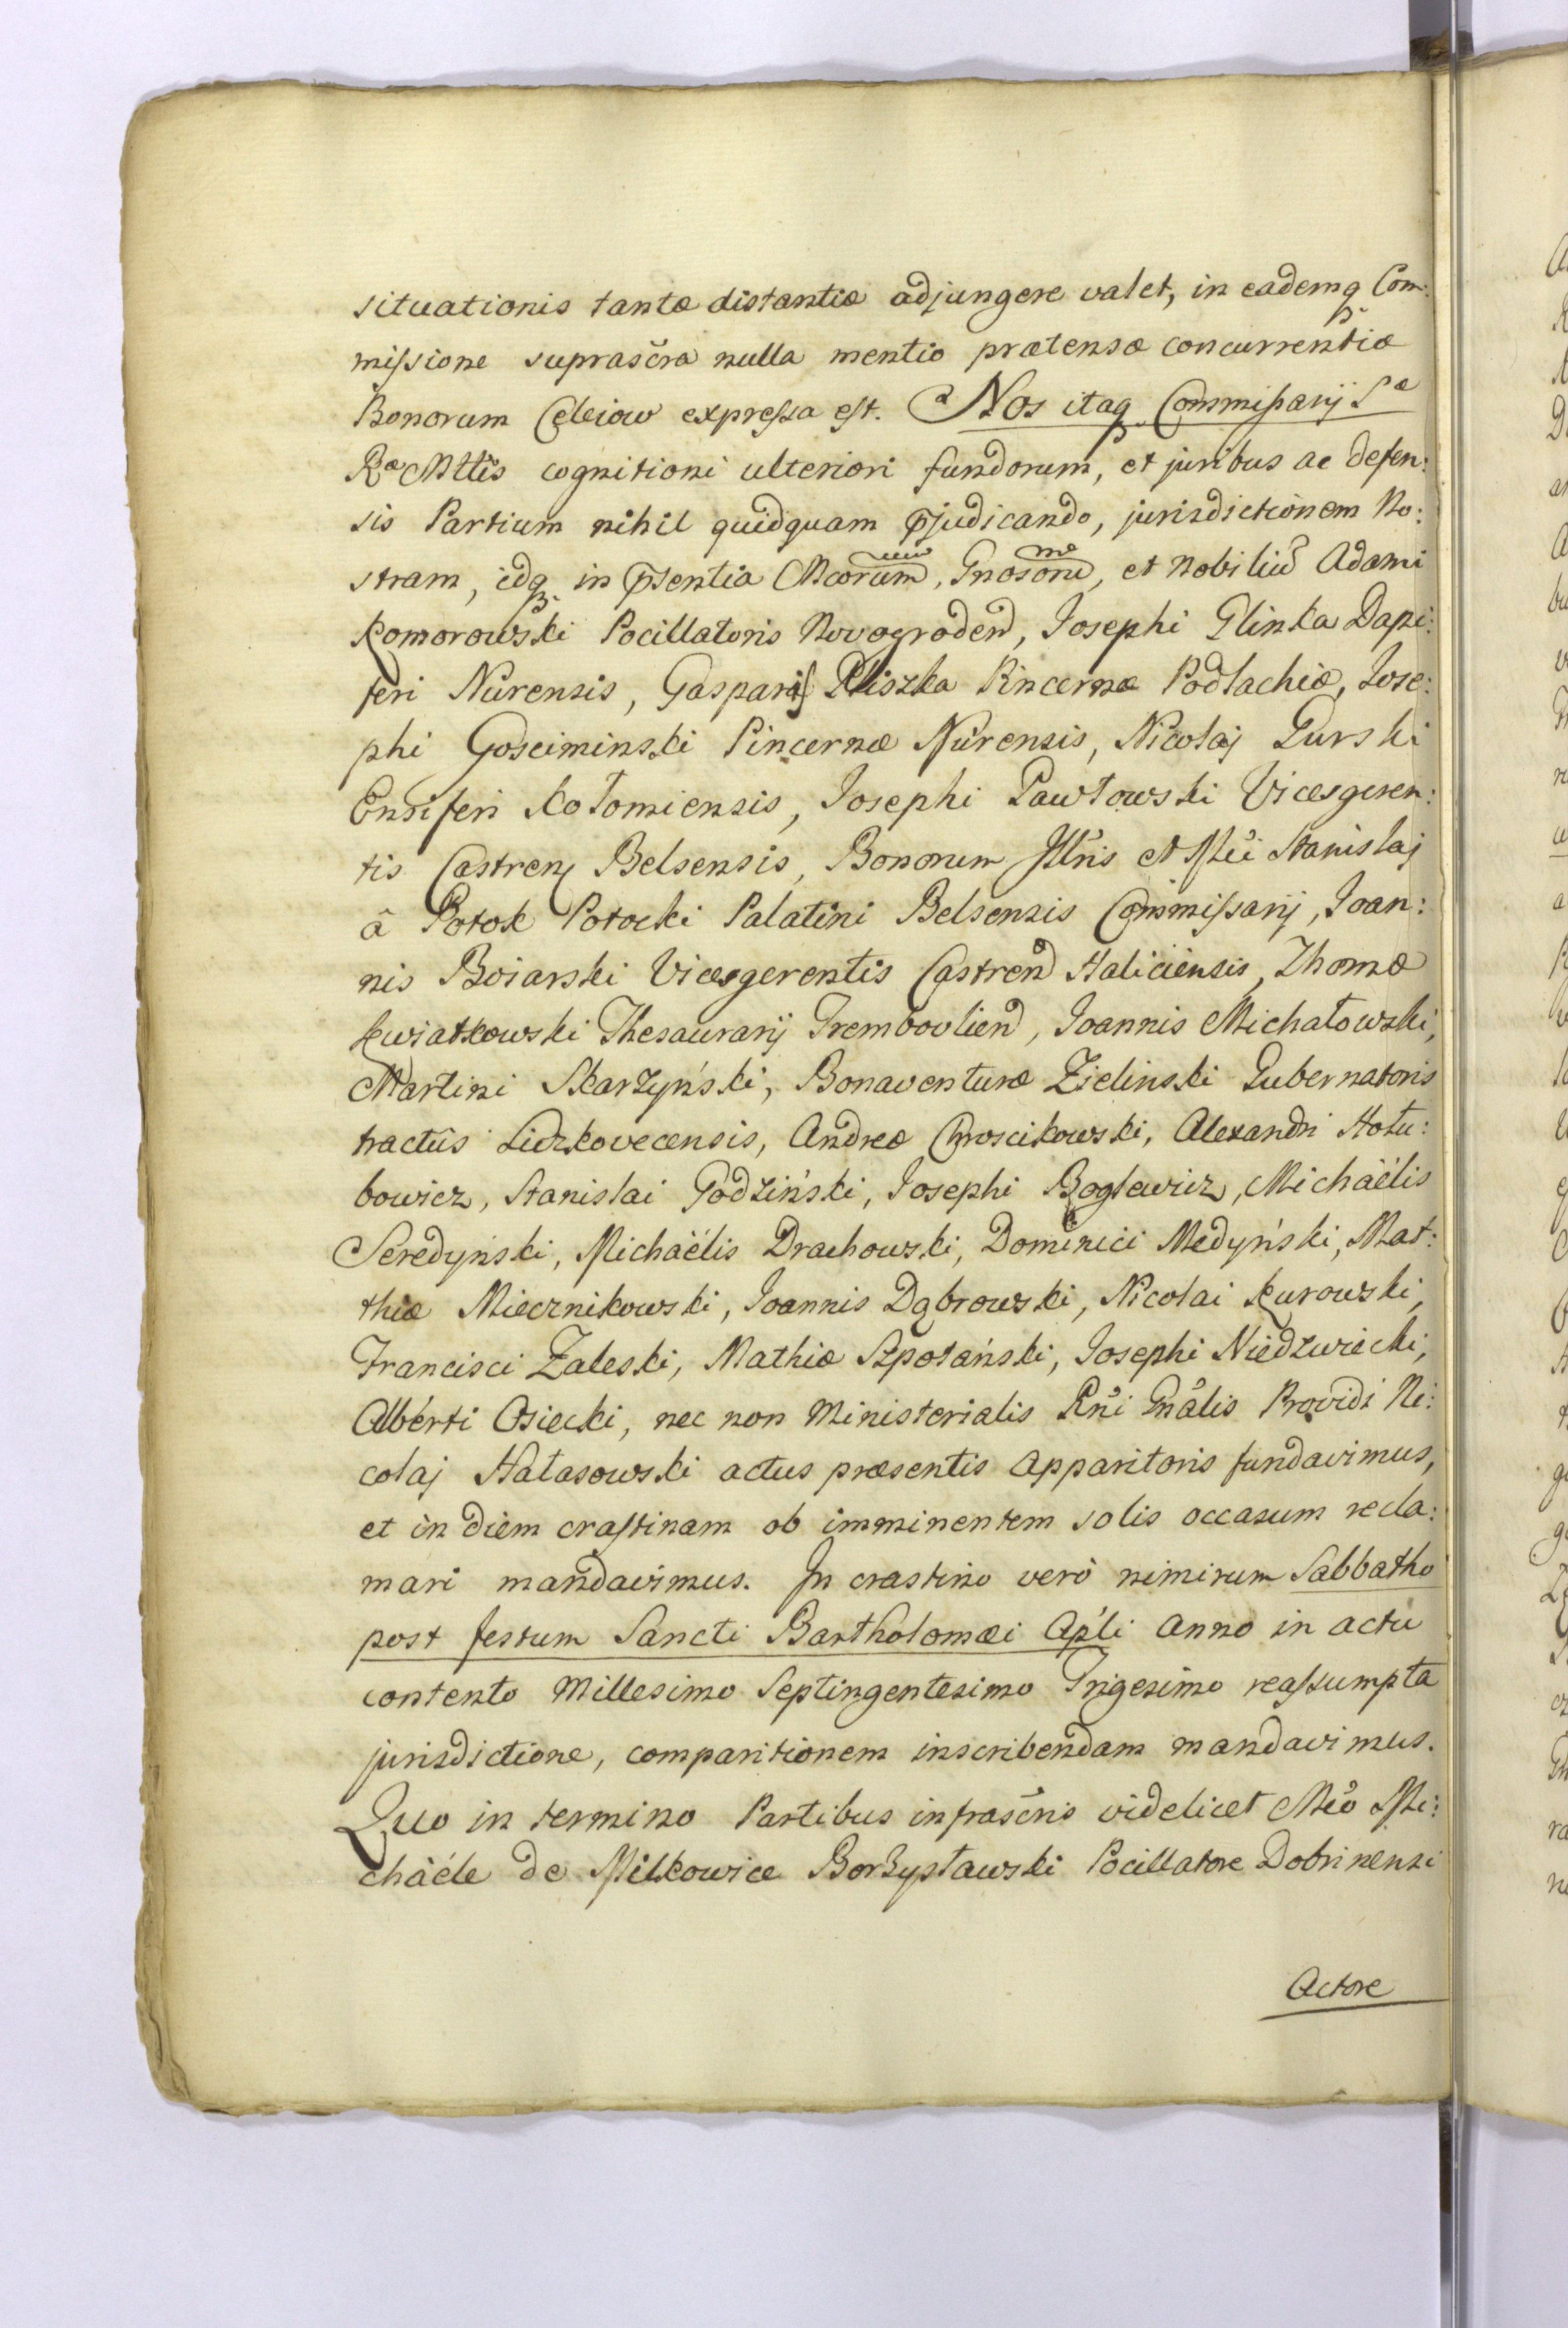 situationis tantæ distantiæ adjungere valet, in eademq Com:
missione suprascr̃a nulla mentio prætensæ concurrentiæ
Bonorum Celeiow expressa est. Nos itaq Commissarij Sæ
Ræ Mttis cognitioni ulteriori fundorum, et juribus ac defen:
sis Partium nihil quidquam p̃judicando, jurisdictionem No:
stram, idq in p̃sentia Mcorum, Gnosorũ, et Nobiliũ Adami
Komorowski Pocillatoris Novogroden, Josephi Glinka Dapi:
feri Nurensis, Gasparis Pliszka Pincernæ Podlachiæ, Jose:
phi Gosciminski Pincernæ Nurensis, Nicolaj Gurski
Ensiferi Kołomiensis, Josephi Pawłowski Vicesgeren:
tis Castren Belsensis, Bonorum Illr̃is et Mci Stanislaj
â Potok Potocki Palatini Belsensis Commissarij, Joan:
nis Boiarski Vicesgerentis Castren Haliciensis, Thomæ
Kwiatkowski Thesaurarij Trembowlien, Joannis Michałowski,
Martini Skarżyński, Bonaventuræ Zielinski Gubernatoris
tractûs Lidzkovecensis, Andreæ Chroscikowski, Alexandri Hołu:
bowicz, Stanislai Godziński, Josephi Boglewicz, Michaëlis
Seredyński, Michaëlis Drachowski, Dominici Medyński, Mat:
thiæ Miecznikowski, Joannis Dąbrowski, Nicolai Kurowski,
Francisci Zaleski, Mathiæ Szpotański, Josephi Niedzwiecki,
Alberti Osiecki, nec non Ministerialis Rñi Gñalis Providi Ni:
colaj Hałasowski actus præsentis Apparitoris fundavimus,
et in diem crastinam ob imminentem solis occasum recla:
mari mandavimus. In crastino verò nimirum Sabbatho
post festum Sancti Bartholomæi Apl̃i Anno in actu
contento Millesimo Septingentesimo Trigesimo reassumpta
jurisdictione, comparitionem inscribendam mandavimus.
Quo in termino Partibus infrascr̃is videlicet Mc̃o Mi:
chaële de Milkowice Borzysławski Pocillatore Dobrinensi
Actore